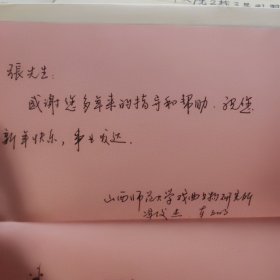 張先生:
感谢您多年来的指导和帮助. 祝您
新年快乐, 事业发达.
山西师范大学戏曲文物研究所
冯俊杰